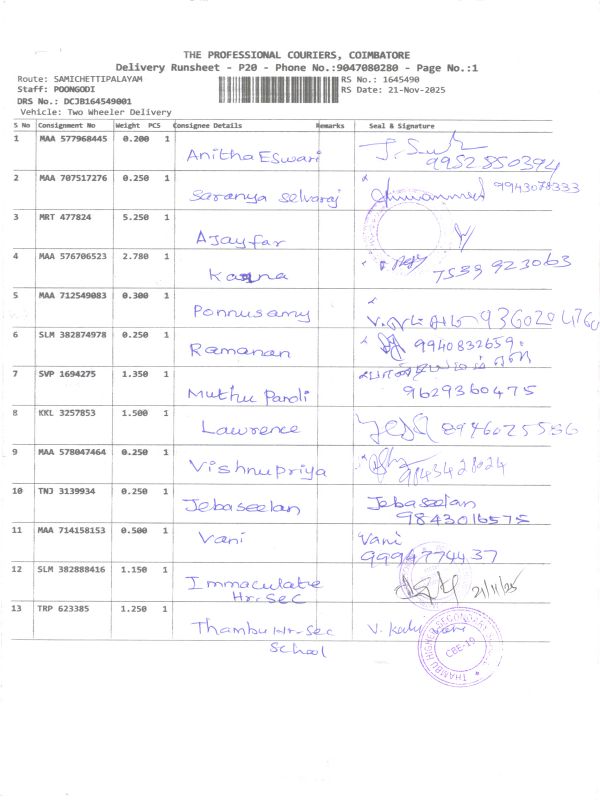 THE PROFESSIONAL COURIERS, COIMBATORE
Delivery Runsheet - P20 - Phone No.:9047080280 - Page No.:1
Route: SAMICHETTIPALAYAM
Staff: POONGODI
DRS No.: DCJB164549001
Vehicle: Two Wheeler Delivery
RS No.: 1645490
RS Date: 21-Nov-2025
S No Consignment No Weight PCS Consignee Details Remarks Seal & Signature
1 MAA 577968445 0.200 1 Anitha Eswari
9952850394
2 MAA 707517276 0.250 1 Saranya Selvaraj 9943078333
3 MRT 477824 5.250 1 Ajayfar
4 MAA 576706523 2.780 1 Kanna 7539923063
5 MAA 712549083 0.300 1 Ponnusamy 9360204760
6 SLM 382874978 0.250 1 Ramanan 9940832659
7 SVP 1694275 1.350 1 Muthu Pandi
9629360475
8 KKL 3257853 1.500 1 Lawrence 8946025556
9 MAA 578047464 0.250 1 Vishnupriya 9843428024
10 TNJ 3139934 0.250 1 Jebaseelan Jebaseelan
9843016575
11 MAA 714158153 0.500 1 Vani Vani
9994774437
12 SLM 382888416 1.150 1 Immaculate 21/11/25
Hr.Sec
13 TRP 623385 1.250 1 Thambu Hr.Sec
School
THAMBU HIGHER SECONDARY SCHOOL
CBE-19